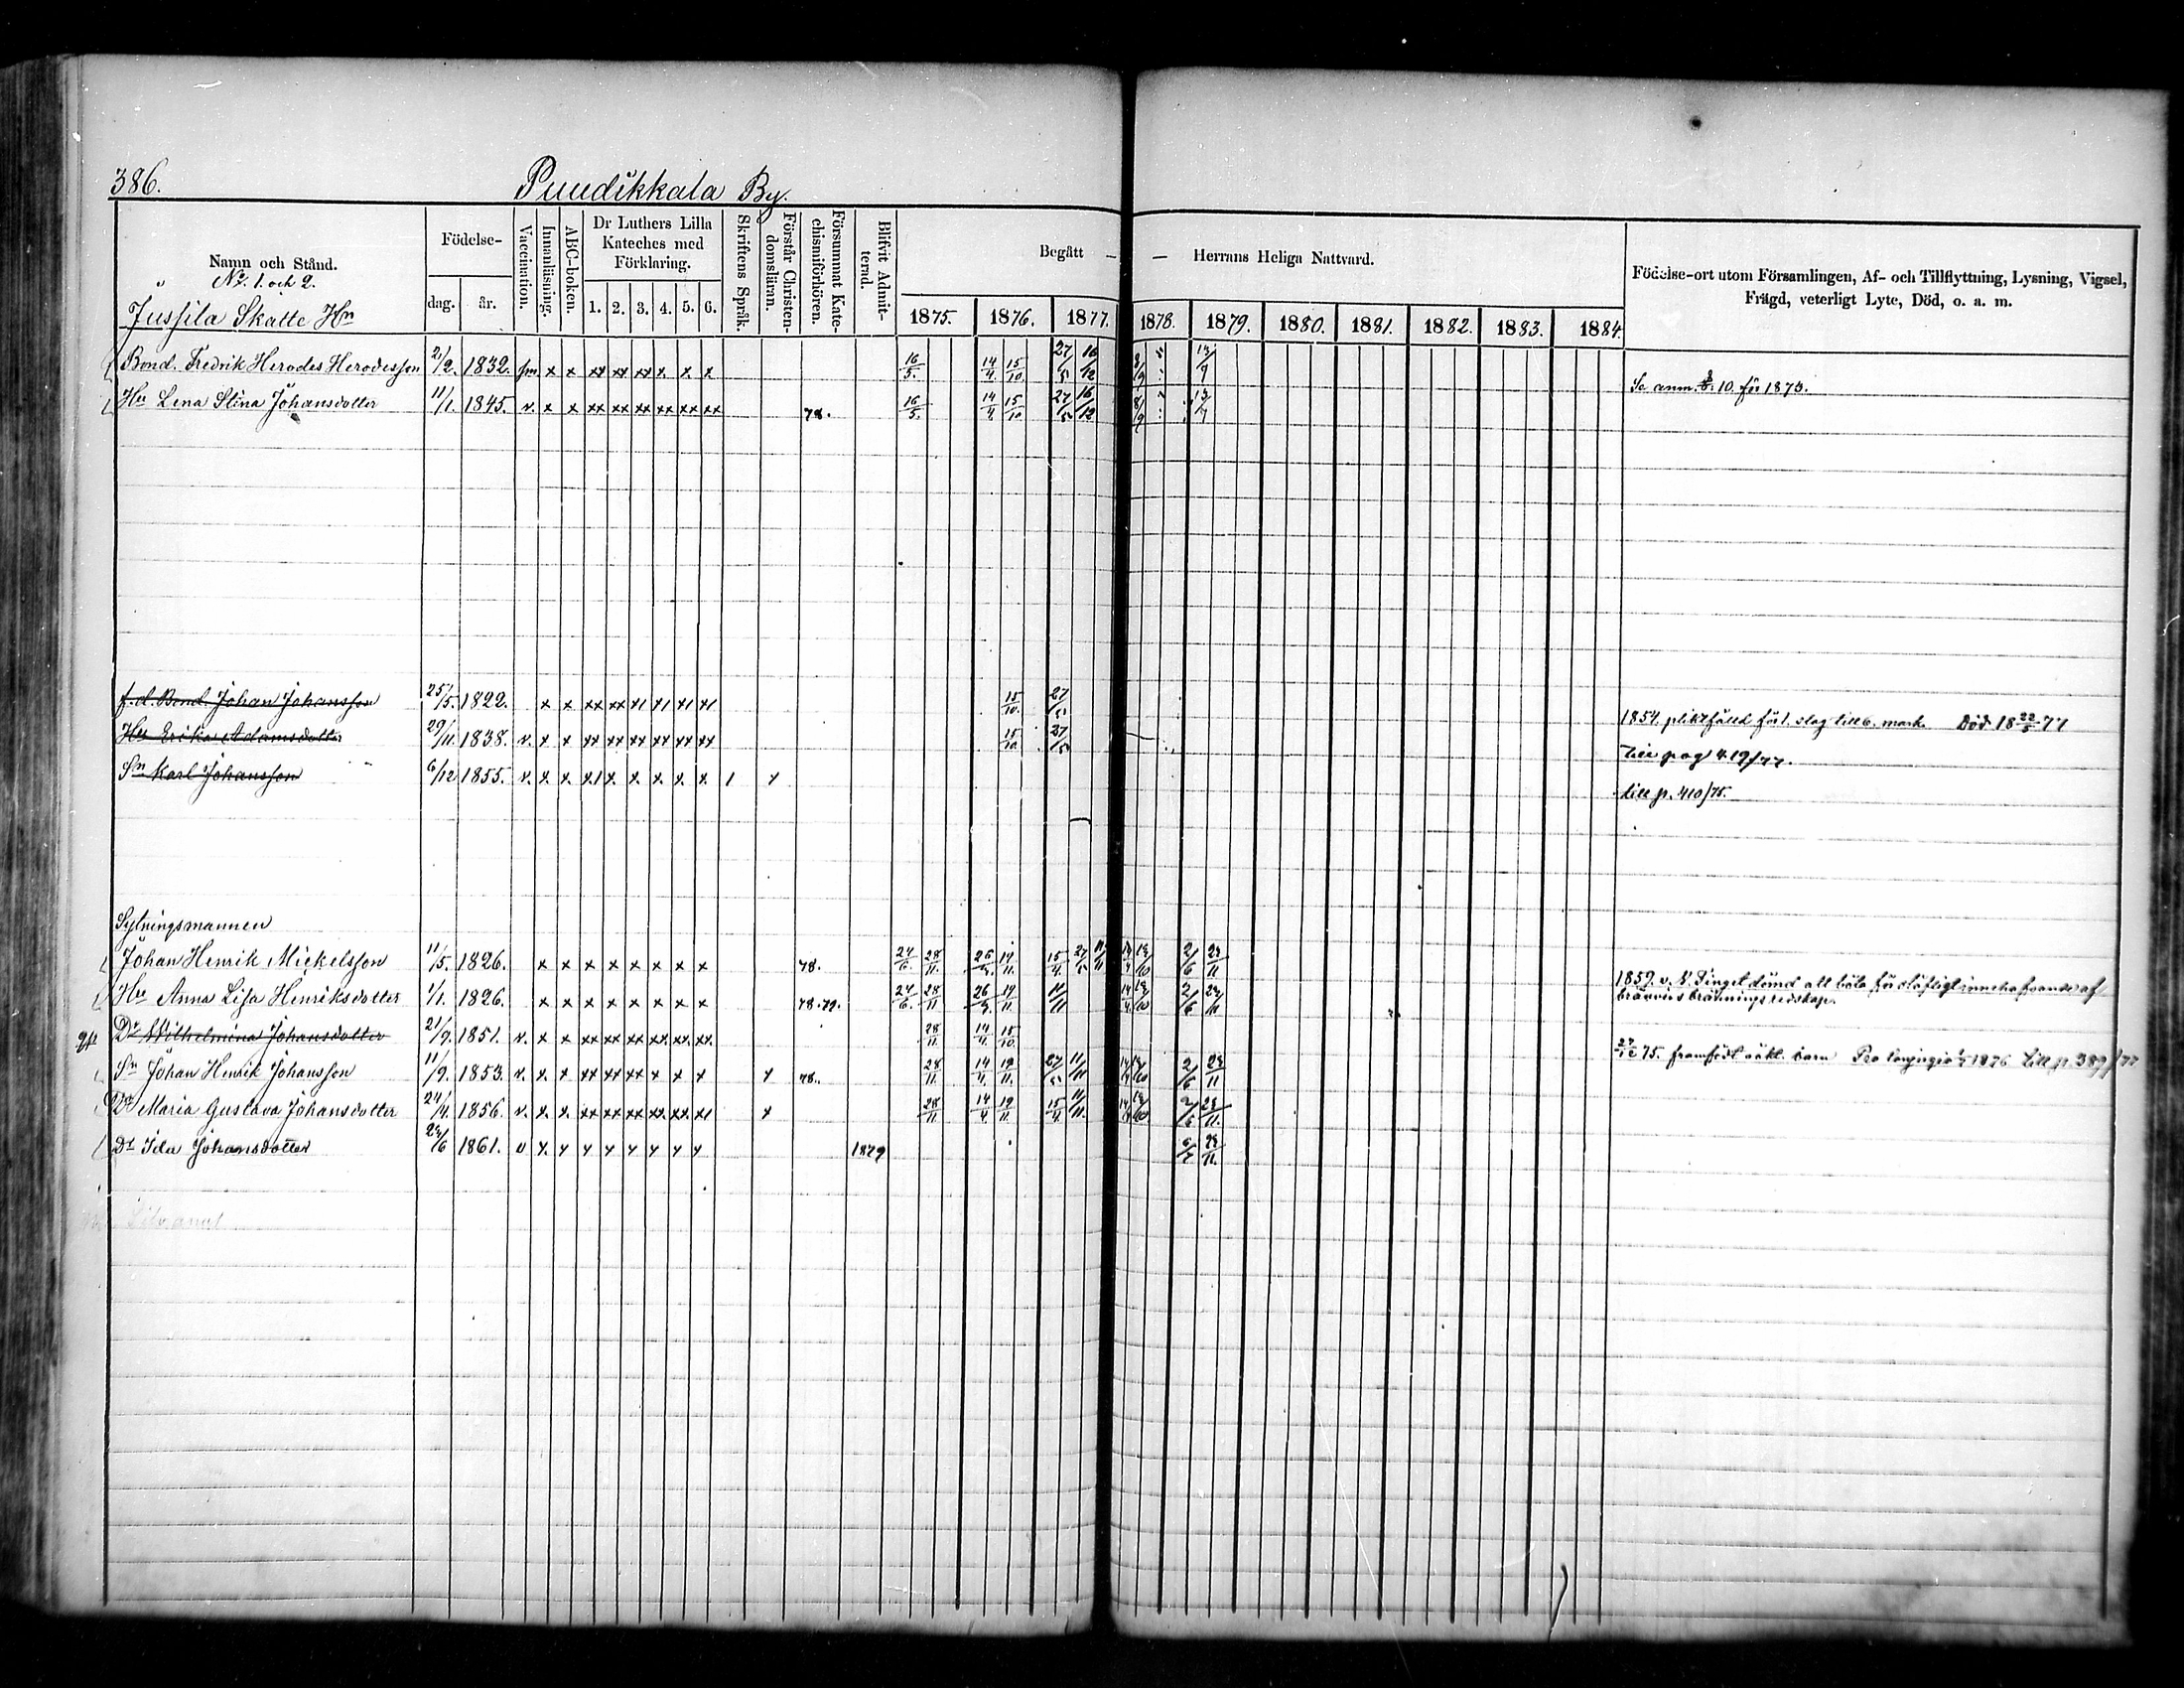 386.
Puudikkala By.
Namn och Stånd.
No. 1. och 2.
Jussila Skatte Hn
Födelse-
dag.
år.
Vaccination.
Innanläsning.
ABC-boken.
Dr Luthers Lilla
Kateches med
Förklaring.
1. 2. 3. 4. 5. 6.
Skriftens Språk.
Förstår Christen-
domsläran.
Försummat Kate-
chismiförhören.
Blifvit Admit-
terad.
Begått — — Herrans Heliga Nattvard.
1875. 1876. 1877. 1878. 1879. 1880. 1881. 1882. 1883. 1884.
Födelse-ort utom Församlingen, Af- och Tillflyttning, Lysning, Vigsel,
Frägd, veterligt Lyte, Död, o. a. m.
Bond. Fredrik Herodes Herodesson 2/2. 1832. x x xx xx xx x. x. x 16/5. 14/4. 15/10. 27/5 16/12 8/9
Se anm. 10. för 1873.
Hu Lena Stina Johansdotter 11/1. 1845. v. x x xx xx xx xx xx xx 78. 16/5. 14/4. 15/10 27/5 16/12 8/9
f. d. Bond. Johan Johansson 25/5. 1822. x x xx xx x1 x1 x1 x1 15/10. 27/5
1854. pliktfälld för 1. slag till 6. mark. Död 18 22/5 77
Hu Erika Adamsdotter 29/11. 1838. v. x x xx xx xx xx xx xx 15/10. 27/5
till pag 419/77.
Sn Karl Johansson 6/12 1855. v. x. x x1 x. x. x. x. x 1 x
till p. 410/75.
Sytningsmannen
Johan Henrik Mickelsson 11/5. 1826. x x x x x x x x 78. 24/6. 28/11. 26/3. 19/11. 15/4. 27/5 11/11 14/4 13/10 2/6 23/11
Hu Anna Lisa Henriksdotter 1/1. 1826. x x x x x x x x 78. 79. 24/6. 28/11 26/3. 19/11. 11/11 14/4. 13/10 2/6 23/11
1859. v. V. Tinget dömd att böta för olofligt innehafvande af
bränvins bränningsredskap.
Dr Wilhelmina Johansdotter 21/9. 1851. v. x x xx xx xx xx xx. xx. 28/11. 14/4. 15/10.
27/12 75. framfödt oäkt. barn till p. 389/77
Sn Johan Henrik Johansson 11/9. 1853. v. x. x xx xx xx x x x x 78. 28/11. 14/4. 19/11. 27/5 11/11 14/4 13/10 2/6 23/11
Dr Maria Gustava Johansdotter 24/4. 1856. v. x. x. xx xx xx xx. xx. x1 x 28/11 14/4. 19/11 15/4. 11/11. 14/4 13/10 2/6 23/11.
Dr Ida Johansdotter 23/6 1861. v x. x x x x x x x 1879 6/7 23/11.